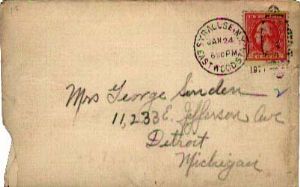 SYRACUSE, N.Y.
JAN 24
6 30 PM
EASTWOOD STA.
Mrs George Linden
11,233 E. Jefferson Ave
Detroit
Michigan